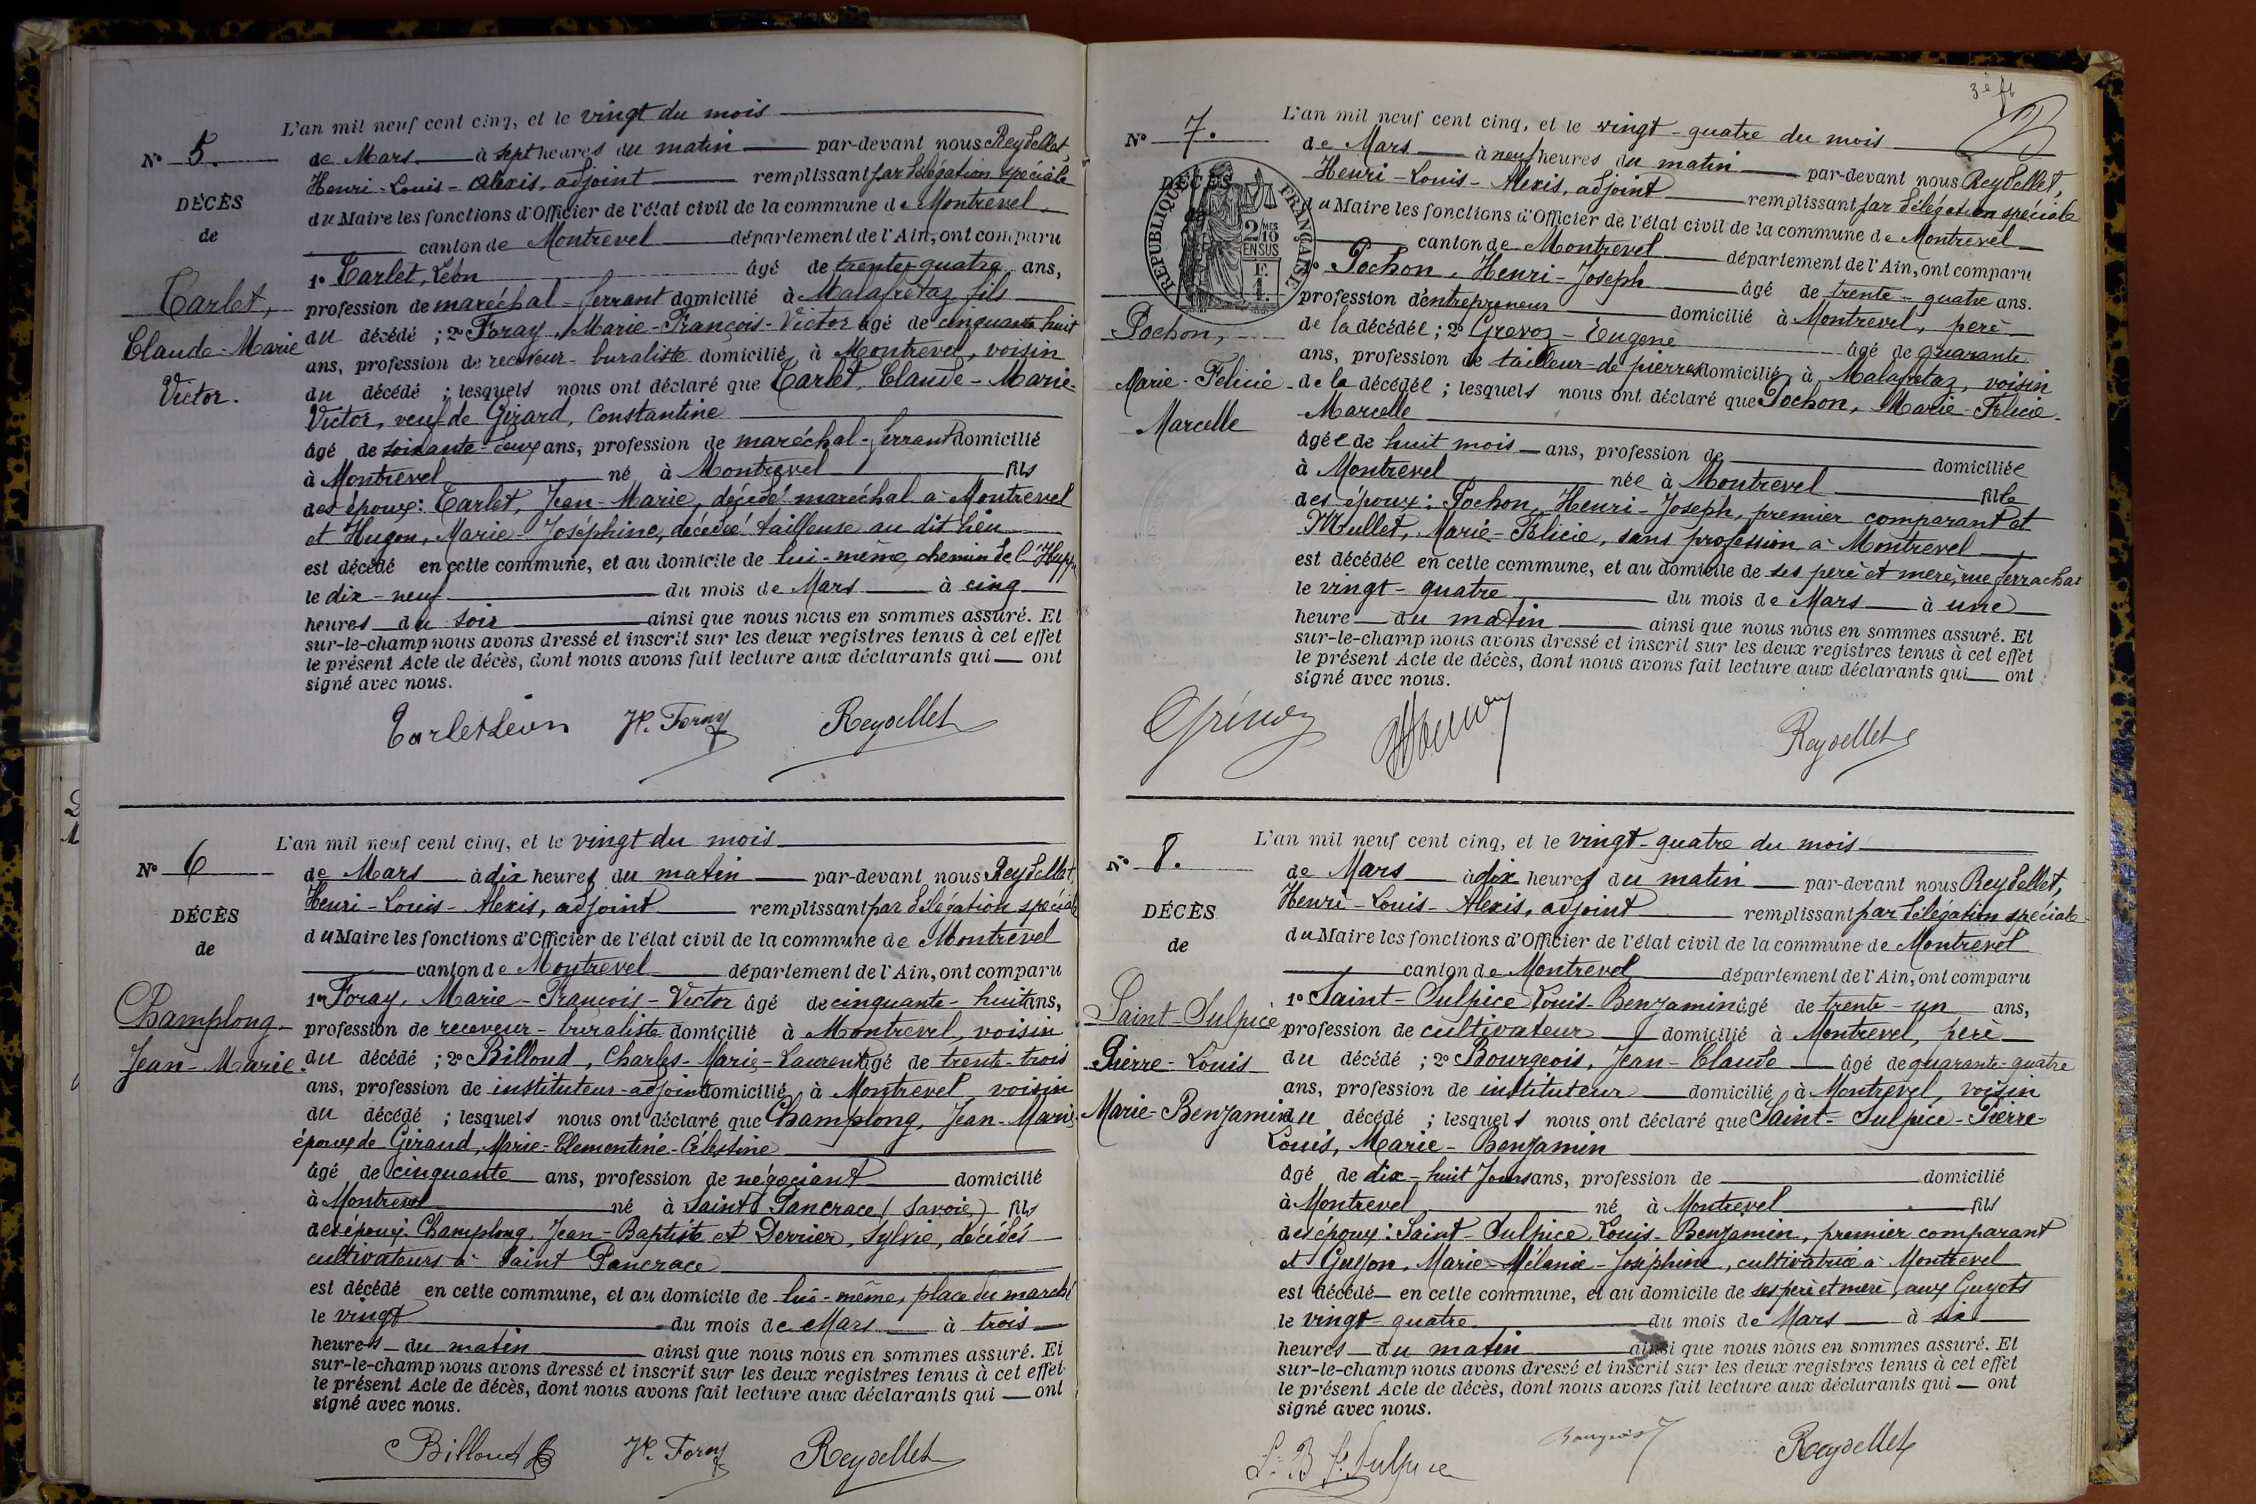 L'an mil neuf cent cinq, et le vingt du mois
N° 5.
de Mars à sept heures du matin par-devant nous Reydellet,
Henri-Louis-Alexis, adjoint remplissant par délégation spéciale
DÉCÈS
du Maire les fonctions d'Officier de l'état civil de la commune de Montrevel
de
canton de Montrevel département de l'Ain, ont comparu
1° Carlet, Léon âgé de trente quatre ans,
Carlet,
profession de maréchal-ferrant domicilié à Malafretaz fils
Claude-Marie
du décédé ; 2° Foray, Marie-François-Victor âgé de cinquante huit
ans, profession de receveur-buraliste domicilié à Montrevel, voisin
Victor.
du décédé ; lesquels nous ont déclaré que Carlet, Claude-Marie-
Victor, veuf de Girard, Constantine
âgé de soixante-deux ans, profession de maréchal-ferrant domicilié
à Montrevel né à Montrevel fils
des époux: Carlet, Jean-Marie, décédé maréchal à Montrevel
et Hugon, Marie-Joséphine, décédée tailleuse au dit lieu
est décédé en cette commune, et au domicile de lui-même, chemin de l'
le dix-neuf du mois de Mars à cinq
heures du soir ainsi que nous nous en sommes assuré. Et
sur-le-champ nous avons dressé et inscrit sur les deux registres tenus à cet effet
le présent Acte de décès, dont nous avons fait lecture aux déclarants qui ont
signé avec nous.
Carlet Léon V. Foray Reydellet
L'an mil neuf cent cinq, et le vingt du mois
N° 6
de Mars à dix heures du matin par-devant nous Reydellet,
Henri-Louis-Alexis, adjoint remplissant par délégation spéciale
DÉCÈS
du Maire les fonctions d'Officier de l'état civil de la commune de Montrevel
de
canton de Montrevel département de l'Ain, ont comparu
1° Foray, Marie-François-Victor âgé de cinquante-huit ans,
Champlong
profession de receveur-buraliste domicilié à Montrevel, voisin
Jean-Marie.
du décédé ; 2° Billoud, Charles-Marie-Laurent âgé de trente-trois
ans, profession de instituteur-adjoint domicilié à Montrevel voisin
du décédé ; lesquels nous ont déclaré que Champlong, Jean-Marie
époux de Giraud, Marie-Clementine-Célestine
âgé de cinquante ans, profession de négociant domicilié
à Montrevel né à Saint Pancrace (Savoie) fils
des époux: Champlong, Jean-Baptiste et Derrier, Sylvie, décédés
cultivateurs à Saint Pancrace
est décédé en cette commune, et au domicile de lui-même, place du marché
le vingt du mois de Mars à trois
heures du matin ainsi que nous nous en sommes assuré. Et
sur-le-champ nous avons dressé et inscrit sur les deux registres tenus à cet effet
le présent Acte de décès, dont nous avons fait lecture aux déclarants qui ont
signé avec nous.
Billoud V. Foray Reydellet
L'an mil neuf cent cinq, et le vingt-quatre du mois
N° 7.
de Mars à neuf heures du matin par-devant nous Reydellet,
Henri-Louis-Alexis, adjoint remplissant par délégation spéciale
DÉCÈS
RÉPUBLIQUE FRANÇAISE
2/10 EN SUS
du Maire les fonctions d'Officier de l'état civil de la commune de Montrevel
canton de Montrevel département de l'Ain, ont comparu
1° Pochon, Henri-Joseph âgé de trente-quatre ans.
profession d'entrepreneur domicilié à Montrevel, père
Pochon,
de la décédée ; 2° Grevoz-Eugène âgé de quarante
ans, profession de tailleur-de pierres domicilié à Malafretaz, voisin
Marie-Felicie-
de la décédée ; lesquels nous ont déclaré que Pochon, Marie-Felicie-
Marcelle
Marcelle
âgée de huit mois ans, profession de domiciliée
à Montrevel née à Montrevel fille
des époux: Pochon, Henri-Joseph, premier comparant et
Mullet, Marie-Felicie, sans profession à Montrevel
est décédée en cette commune, et au domicile de ses père et mère, rue ferrachat
le vingt-quatre du mois de Mars à une
heure du matin ainsi que nous nous en sommes assuré. Et
sur-le-champ nous avons dressé et inscrit sur les deux registres tenus à cet effet
le présent Acte de décès, dont nous avons fait lecture aux déclarants qui ont
signé avec nous.
Reydellet
L'an mil neuf cent cinq, et le vingt-quatre du mois
N° 8.
de Mars à dix heures du matin par-devant nous Reydellet,
Henri-Louis-Alexis, adjoint remplissant par délégation spéciale
DÉCÈS
du Maire les fonctions d'Officier de l'état civil de la commune de Montrevel
de
canton de Montrevel département de l'Ain, ont comparu
1° Saint-Sulpice Louis-Benjamin âgé de trente-un ans,
Saint-Sulpice
profession de cultivateur domicilié à Montrevel, père
Pierre-Louis
du décédé ; 2° Bourgeois, Jean-Claude âgé de quarante-quatre
ans, profession de instituteur domicilié à Montrevel, voisin
Marie-Benjamin
du décédé ; lesquels nous ont déclaré que Saint-Sulpice-Pierre-
Louis, Marie-Benjamin
âgé de dix-huit Jours ans, profession de domicilié
à Montrevel né à Montrevel fils
des époux: Saint-Sulpice, Louis-Benjamin, premier comparant
et Guyon, Marie-Mélanie-Joséphine, cultivatrice à Montrevel
est décédé en cette commune, et au domicile de ses père et mère, aux Guyots
le vingt-quatre du mois de Mars à six
heures du matin ainsi que nous nous en sommes assuré. Et
sur-le-champ nous avons dressé et inscrit sur les deux registres tenus à cet effet
le présent Acte de décès, dont nous avons fait lecture aux déclarants qui ont
signé avec nous.
L. B. St. Sulpice Bourgeois Reydellet